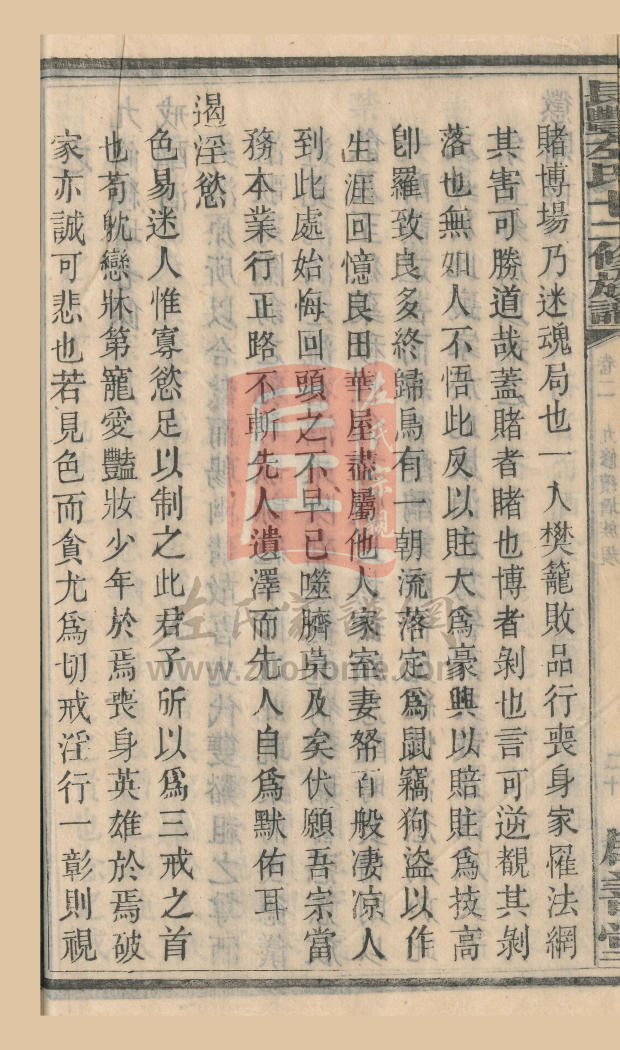 賭博場乃迷魂局也一入樊籠敗品行喪身家罹法網
其害可勝道哉蓋賭者睹也博者剝也言可逆覩其剝
落也無如人不悟此反以賍大爲豪興以賠賍爲技高
卽羅致良多終歸烏有一朝流落定爲鼠竊狗盜以作
生涯回憶良田華屋盡屬他人家室妻孥百般凄凉人
到此處始悔回頭之不早已噬臍莫及矣伏願吾宗當
務本業行正路不斬先人遺澤而先人自爲默佑耳
遏淫慾
色易迷人惟寡慾足以制之此君子所以爲三戒之首
也苟躭戀牀第寵愛豔妝少年於焉喪身英雄於焉破
家亦誠可悲也若見色而貪尤爲切戒淫行一彰則視
左氏宗親
左氏家譜網
www.zuohome.com